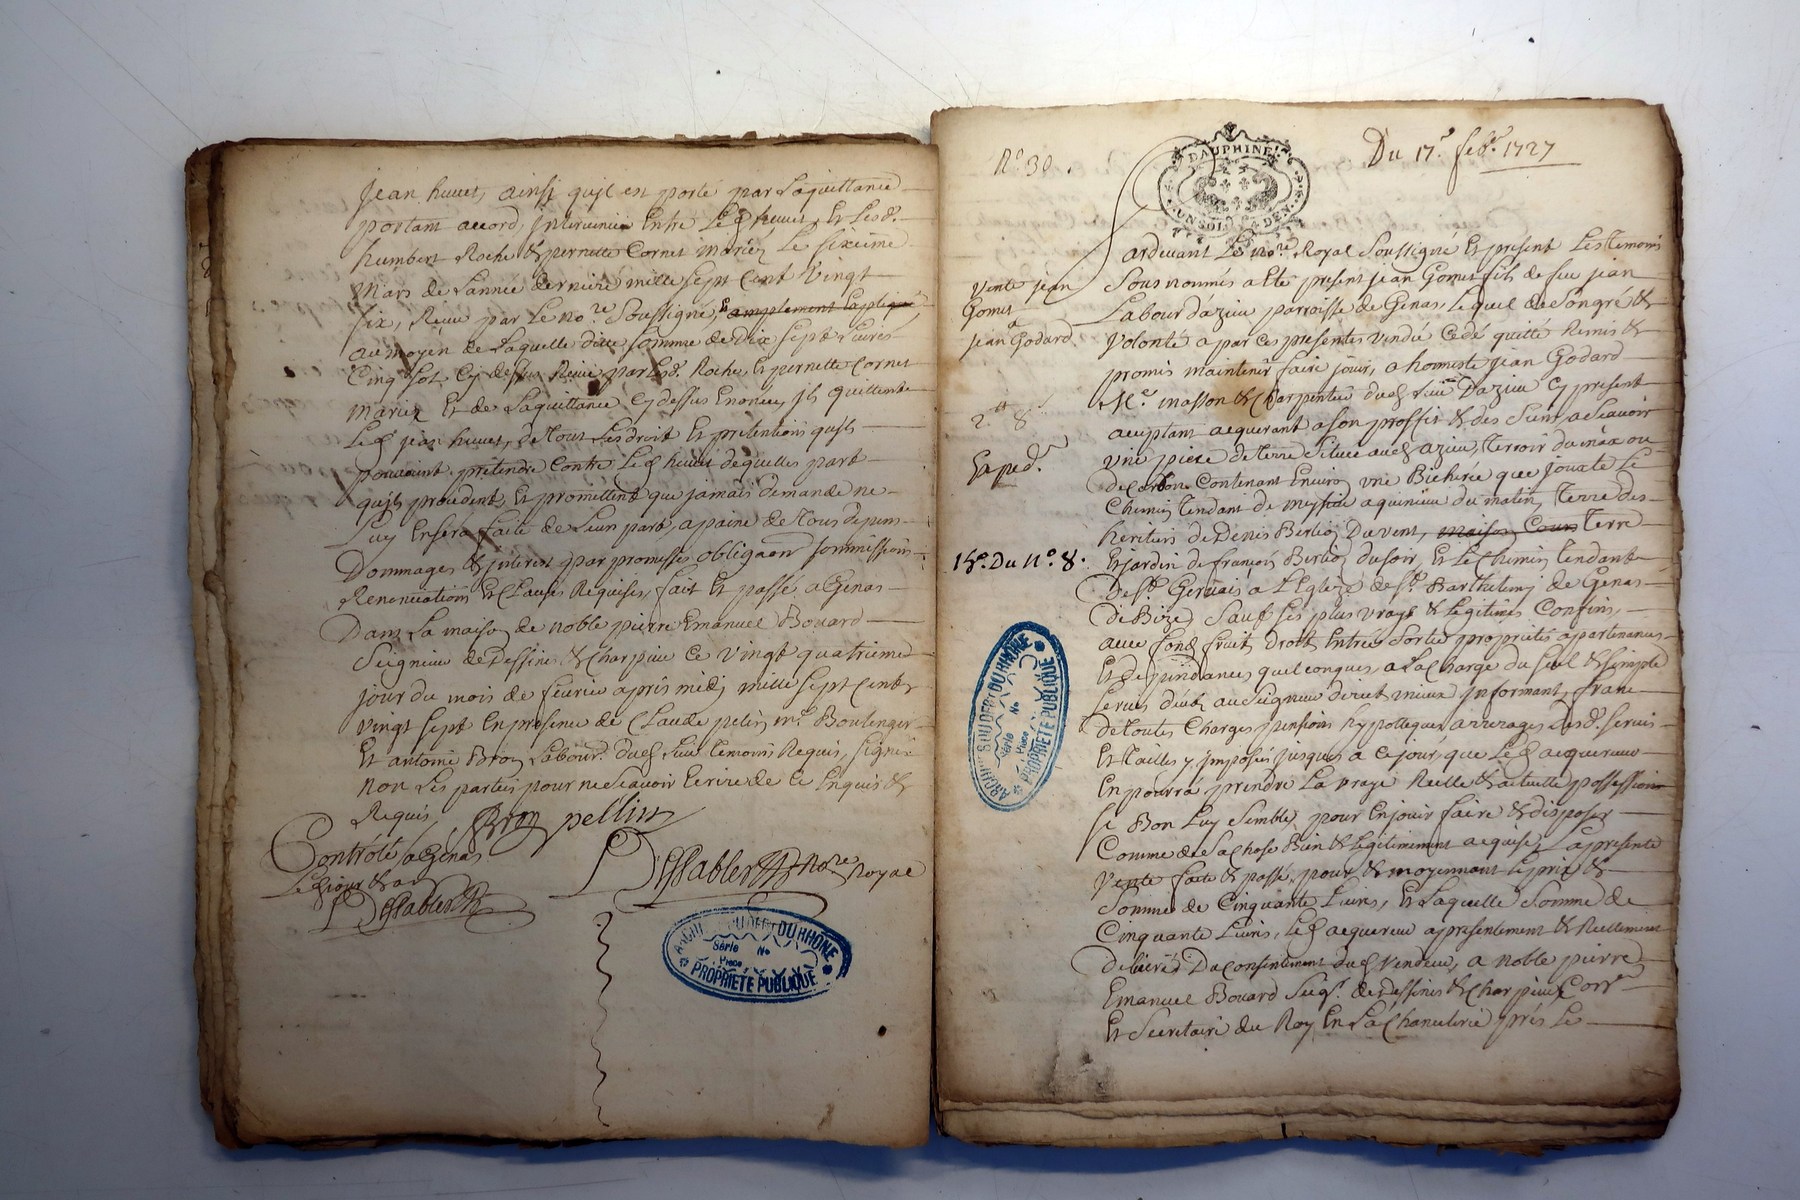 Jean huuet, ainsi qu'il est porté par la quittance
portant accord, Intervenue Entre Led huuet, Et Lesd.
humbert Roche & pernette Cornet mariez Le sixieme
mars de Lannée derniere mille sept Cent Vingt
six, Reçue par Le no.re Soussigné,
au moyen de Laquelle ditte somme de Dix sept Livres
Cinq sols Cy dessus Reçue par Lesd. Roche Et pernette Cornet
mariez Et de La quittance Cy dessus Enoncée, ils quittent
Led jean huuet, de Tous Les droit Et pretentions qu'ils
pouvoint pretendre Contre Led huuet dequelles part
qu'ils procedent, Et promettent que jamais demande ne
Luy En sera faite de Leur part, a paine de Tous depens
Dommages & interest par promesses obligaon sommissions
Renonciations Et Clauses Requises, fait Et passé a Genas
Dans La maison de noble pierre Emanuel Bouard
Seigneur de Dessines & Charpieu Ce Vingt quatrieme
jour du mois de feuvrier apres midy mille sept Cents
Vingt sept En presence de Claude pelin m.e Boulenger
Et antoine Bron Labour. dud Lieu Temoins Requis, signés
non Les parties pour ne sçavoir Ecrire de Ce Enquis &
Requis
Bron pellin
Controllé a Genas
Led jour & an
Dessablerre no.re Royal
Dessablerre
ARCHIVES DU DEPt DU RHÔNE
Série No
Pièce
PROPRIÉTÉ PUBLIQUE
N.o 30.
DAUPHINE.
UN SOL 4 DEN.
Du 17.e feb.r 1727
Vente jean
Gomet
a
jean Godard
2.tt 8.s
Exped.
18.e Du N.o 8.
ARCHIVES DU DEPt DU RHÔNE
Série No
Pièce
PROPRIÉTÉ PUBLIQUE
Pardevant Le no.re Royal Soussigné Et present Les Temoins
Sous nommés a Eté present Jean Gomet fils de feu jean
Labour d'azieu parroisse de Genas, Lequel de Son gré &
Volonté a par Ces presentes vendu Cedé quitté Remis &
promis maintenir faire jouir, a honneste Jean Godard
M.e masson & Charpentier dud Lieu Dazieu Cy present
acceptant acquerant a son proffit & des Siens, a sçavoir
Une piece de Terre Située aud azieu, Terroir du max ou
de Carbon Contenant Environ une Bicherée que jouxte Le
Chemin Tendant de meyssie a quinieu du matin, Terre des
heritiers de Denis Berlioz Du vent, maison Cour Terre
Et jardin de françois Berlioz du soir, Et Le Chemin Tendant
De S.t Gervais a L'Eglize de S.t Barthelemy de Genas
De Bize, Sauf Ses plus vrays & Legitimes Confins,
avec fond fruit Droits Entrées Sorties proprietés apartenances
Et dependances quelconques, a La Charge du seul & simple
servis dûeb au seigneur direct mieux Informant, franc
de Toutes Charges pensions hypotteques arrerages desd. servis
Et Tailles y Imposées jusques a Ce jour, que Led acquereur
En pourra prendre La vraye Reelle & actuelle possession
se Bon Luy Semble, pour En jouir faire & disposer
Comme de Sa Chose Bien & Legitimement acquise, La presente
Vente faite & passé, pour & moyennant Le prix &
Somme de Cinquante Livres, Et Laquelle Somme de
Cinquante Livres, Led acquereur a presentement & Reellement
delivrés Du Consentement dud Vendeur, a noble pierre
Emanuel Bouard Seig.r de Dessines & Charpieu, Con.r
Et Secretaire du Roy En La Chancelerie près Le